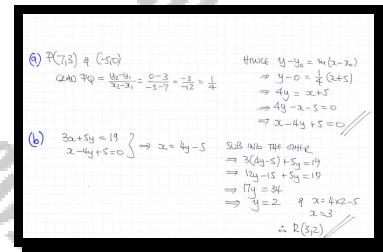 (a) P(7,3) & (-5,0)
GRAD PQ = y₂-y₁/x₂-x₁ = 0-3/-5-7 = -3/-12 = 1/4
HENCE y-y₀ = m(x-x₀)
⇒ y-0 = 1/4(x+5)
⇒ 4y = x+5
⇒ 4y-x-5=0
⇒ x-4y+5=0
(b) 3x+5y=19
x-4y+5=0 } ⇒ x = 4y-5
SUB INTO THE OTHER
⇒ 3(4y-5)+5y=19
⇒ 12y-15+5y=19
⇒ 17y=34
⇒ y=2 & x=4×2-5
x=3
∴ R(3,2)